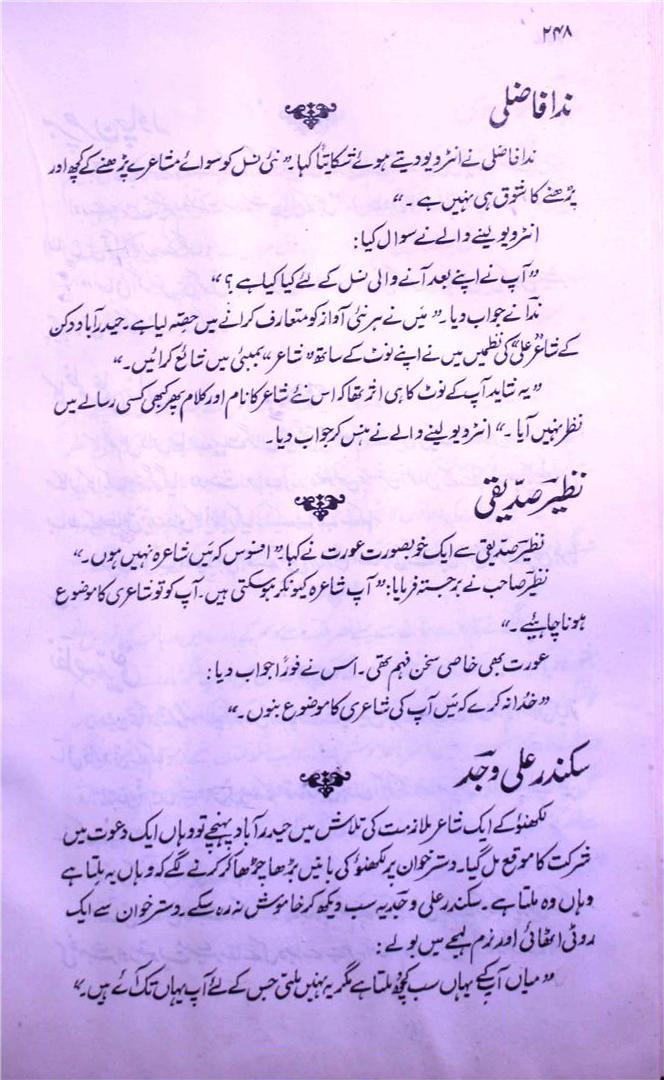 ۲۴۸
ندا فاضلی
ندا فاضلی نے انٹرویو دیتے ہوئے شکایتاً کہا۔ ”نئی نسل کو سوائے مشاعرے پڑھنے کے کچھ اور
پڑھنے کا شوق ہی نہیں ہے۔“
انٹرویو لینے والے نے سوال کیا:
”آپ نے اپنے بعد آنے والی نسل کے لئے کیا کیا ہے؟“
ندا نے جواب دیا۔ ”میں نے ہر نئی آواز کو متعارف کرانے میں حصہ لیا ہے۔ حیدرآباد دکن
کے شاعر علی کی نظمیں میں نے اپنے نوٹ کے ساتھ ”شاعر“ بمبئی میں شائع کرائیں۔“
”یہ شاید آپ کے نوٹ کا ہی اثر تھا کہ اس نئے شاعر کا نام اور کلام پھر کبھی کسی رسالے میں
نظر نہیں آیا۔“ انٹرویو لینے والے نے ہنس کر جواب دیا۔
نظیر صدیقی
نظیر صدیقی سے ایک خوبصورت عورت نے کہا: ”افسوس کہ میں شاعرہ نہیں ہوں۔“
نظیر صاحب نے برجستہ فرمایا: ”آپ شاعرہ کیونکر ہو سکتی ہیں۔ آپ کو تو شاعری کا موضوع
ہونا چاہئیے۔“
عورت بھی خاصی سخن فہم تھی۔ اس نے فوراً جواب دیا:
”خدا نہ کرے کہ میں آپ کی شاعری کا موضوع بنوں۔“
سکندر علی وجد
لکھنؤ کے ایک شاعر ملازمت کی تلاش میں حیدرآباد پہنچے تو وہاں ایک دعوت میں
شرکت کا موقع مل گیا۔ دسترخوان پر لکھنؤ کی باتیں بڑھا چڑھا کر کرنے لگے کہ وہاں یہ ملتا ہے
وہاں وہ ملتا ہے۔ سکندر علی وجد یہ سب دیکھ کر خاموش نہ رہ سکے۔ دسترخوان سے ایک
روٹی اٹھائی اور نرم لہجے میں بولے:
”میاں آپ کے یہاں سب کچھ ملتا ہے مگر یہ نہیں ملتی جس کے لئے آپ یہاں تک آئے ہیں۔“